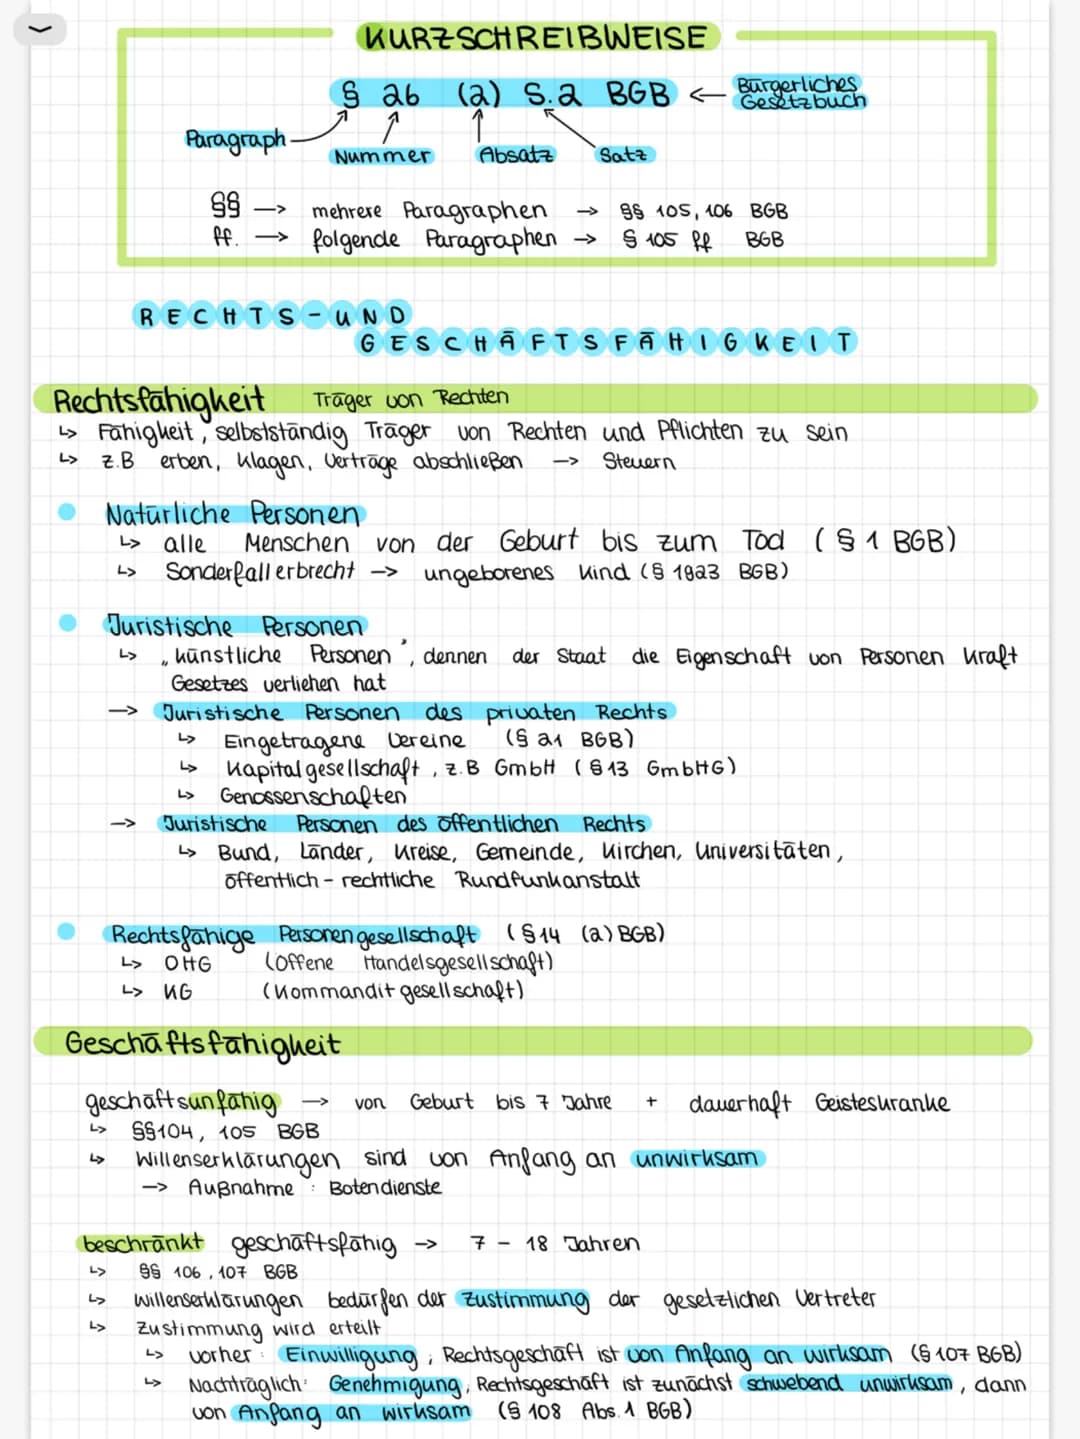 KURZSCHREIBWEISE
§ 26 (2) S.2 BGB ← Bürgerliches
Gesetzbuch
Paragraph
Nummer Absatz Satz
§§ → mehrere Paragraphen → §§ 105, 106 BGB
ff. → folgende Paragraphen → § 105 ff BGB
RECHTS-UND
GESCHÄFTSFÄHIGKEIT
Rechtsfähigkeit Träger von Rechten
↳ Fähigkeit, selbstständig Träger von Rechten und Pflichten zu sein
↳ z.B erben, klagen, Verträge abschließen → Steuern
• Natürliche Personen
↳ alle Menschen von der Geburt bis zum Tod (§ 1 BGB)
↳ Sonderfall erbrecht → ungeborenes Kind (§ 1923 BGB)
• Juristische Personen
↳ „künstliche Personen", dennen der Staat die Eigenschaft von Personen kraft
Gesetzes verliehen hat
→ Juristische Personen des privaten Rechts
↳ Eingetragene Vereine (§ 21 BGB)
↳ Kapitalgesellschaft, z.B GmbH (§ 13 GmbHG)
↳ Genossenschaften
→ Juristische Personen des öffentlichen Rechts
↳ Bund, Länder, Kreise, Gemeinde, Kirchen, Universitäten,
öffentlich-rechtliche Rundfunkanstalt
• Rechtsfähige Personengesellschaft (§ 14 (2) BGB)
↳ OHG (Offene Handelsgesellschaft)
↳ KG (Kommanditgesellschaft)
Geschäftsfähigkeit
geschäftsunfähig → von Geburt bis 7 Jahre + dauerhaft Geisteskranke
↳ §§104, 105 BGB
↳ Willenserklärungen sind von Anfang an unwirksam
→ Außnahme : Botendienste
beschränkt geschäftsfähig → 7 - 18 Jahren
↳ §§ 106, 107 BGB
↳ Willenserklärungen bedürfen der Zustimmung der gesetzlichen Vertreter
↳ Zustimmung wird erteilt
↳ vorher : Einwilligung ; Rechtsgeschäft ist von Anfang an wirksam (§ 107 BGB)
↳ Nachträglich: Genehmigung, Rechtsgeschäft ist zunächst schwebend unwirksam, dann
von Anfang an wirksam (§ 108 Abs. 1 BGB)